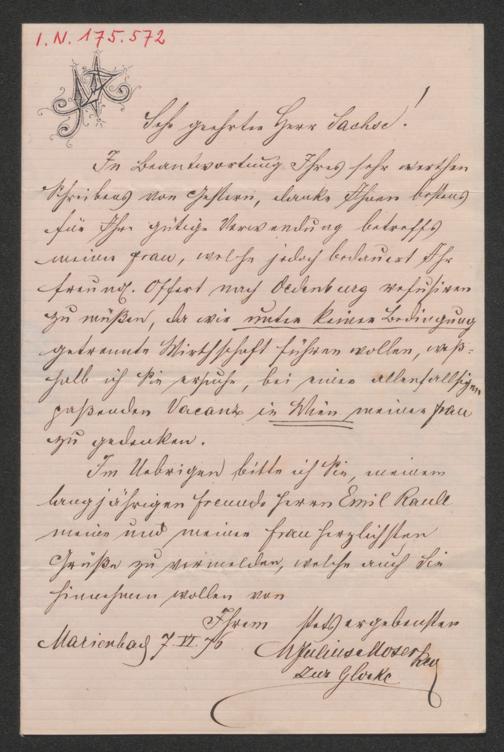 I.N. 175.572
Sehr geehrter Herr Sachse!
In Beantwortung Ihres sehr werthen
Schreibens von Gestern, danke Ihnen bestens
für Ihre gütige Verwendung betreffs
meine Frau, welche jedoch bedauert Ihr
freundl. Offert nach Oedenburg refusiren
zu müßen, da wir unter keiner Bedingung
getrennte Wirthschaft führen wollen, weß-
halb ich Sie ersuche, bei einer allenfallsigen
paßenden Vacanz in Wien meiner Frau
zu gedenken.
Im Uebrigen bitte ich Sie, meinem
langjährigen Freunde Herrn Emil
meine und meiner Frau herzlichsten
Grüße zu vermelden, welche auch Sie
hinnehmen wollen von
Ihrem stets ergebensten
Marienbad 7.VI.76 Julius Moser
zur Glocke